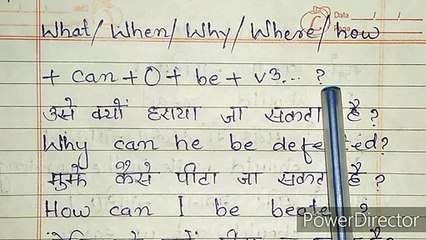 Date / /
What/When/Why/Where/how
+ can + O + be + v3... ?
उसे क्यों हराया जा सकता है ?
Why can he be defeated?
मुझे कैसे पीटा जा सकता है ?
How can I be beaten ?
PowerDirector